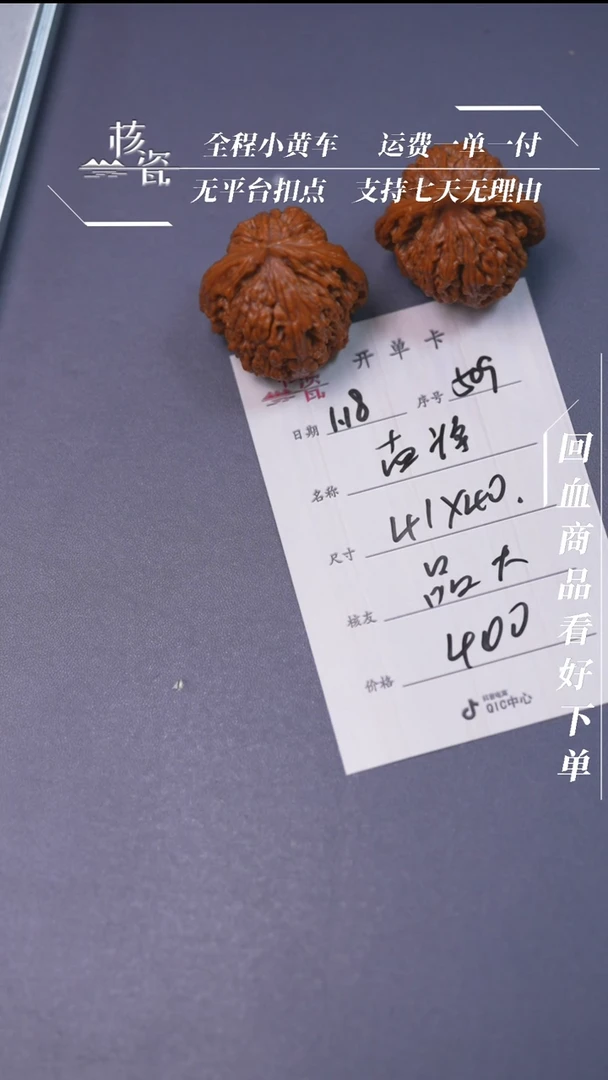 核瓷
全程小黄车 运费一单一付
无平台扣点 支持七天无理由
开单卡
日期 1.18 序号 509
名称
尺寸 41X40.
核友 品大
价格 400
抖音电商
QIC中心
回血商品看好下单